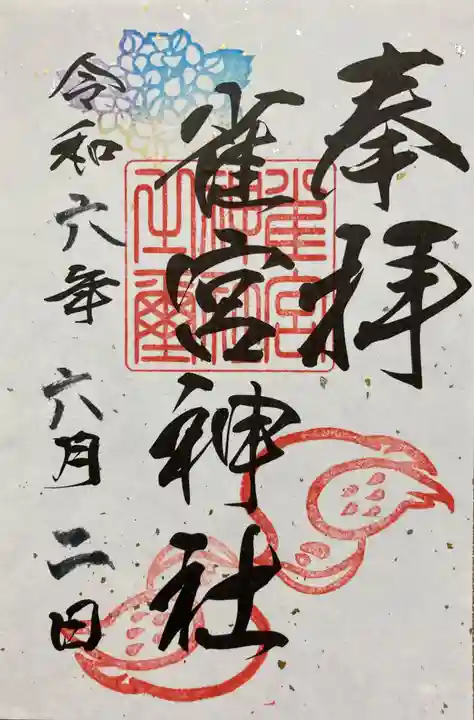 奉拝
雀宮神社
雀宮神社之璽
令和六年 六月 二日